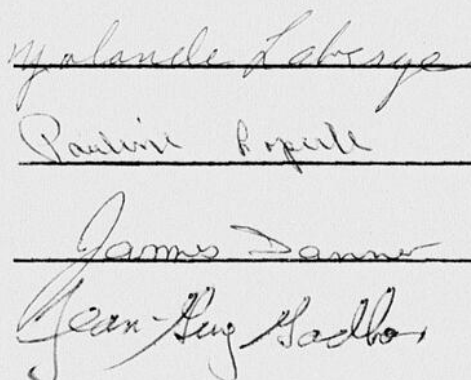 Yolande Laberge
Pauline
James Danner
Jean-Guy Gadbois